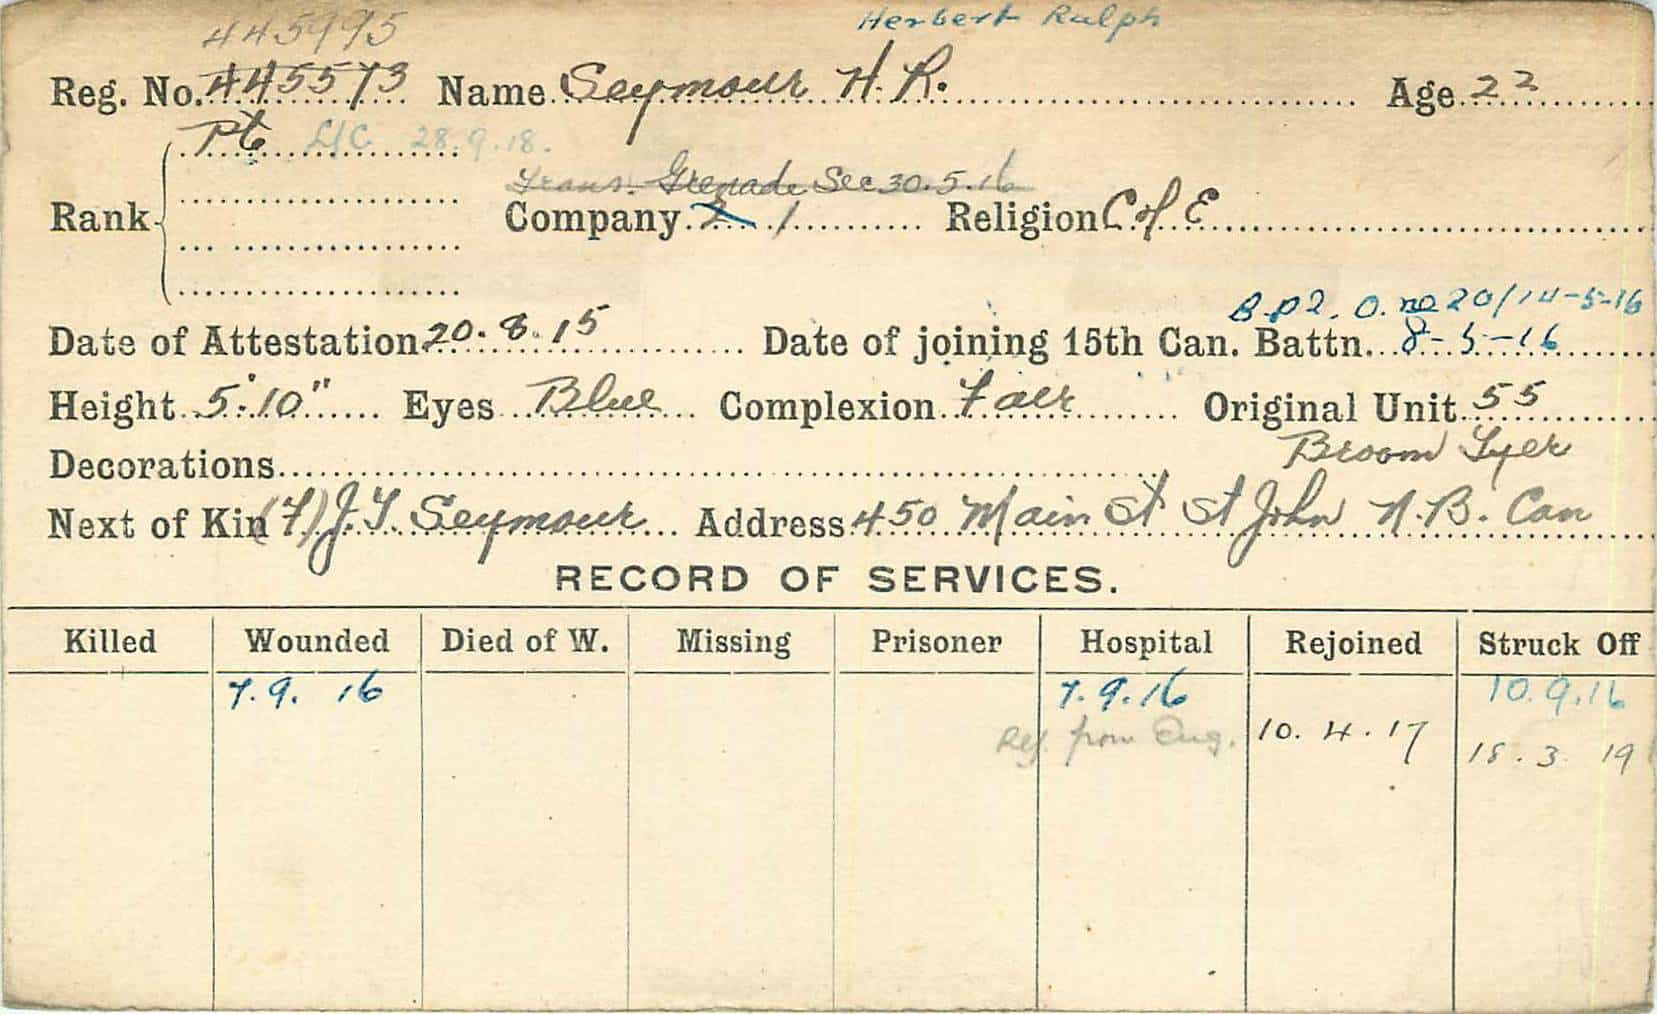 445995 Herbert Ralph
Reg. No. 445573 Name Seymour H. R. Age 22
Pte L/C 28.9.18.
Trans. Grenade Sec 30.5.16
Rank Company 2 1 Religion C of E
B.p2. O. no 20/14-5-16
Date of Attestation 20.8.15 Date of joining 15th Can. Battn. 8-5-16
Height 5'.10" Eyes Blue Complexion Fair Original Unit 55
Decorations Broom Tyer
Next of Kin (F) J.T. Seymour Address 450 Main St St John N.B. Can
RECORD OF SERVICES.
Killed Wounded Died of W. Missing Prisoner Hospital Rejoined Struck Off
7.9.16 7.9.16 10.9.16
Ref from Eng. 10.4.17 18.3.19